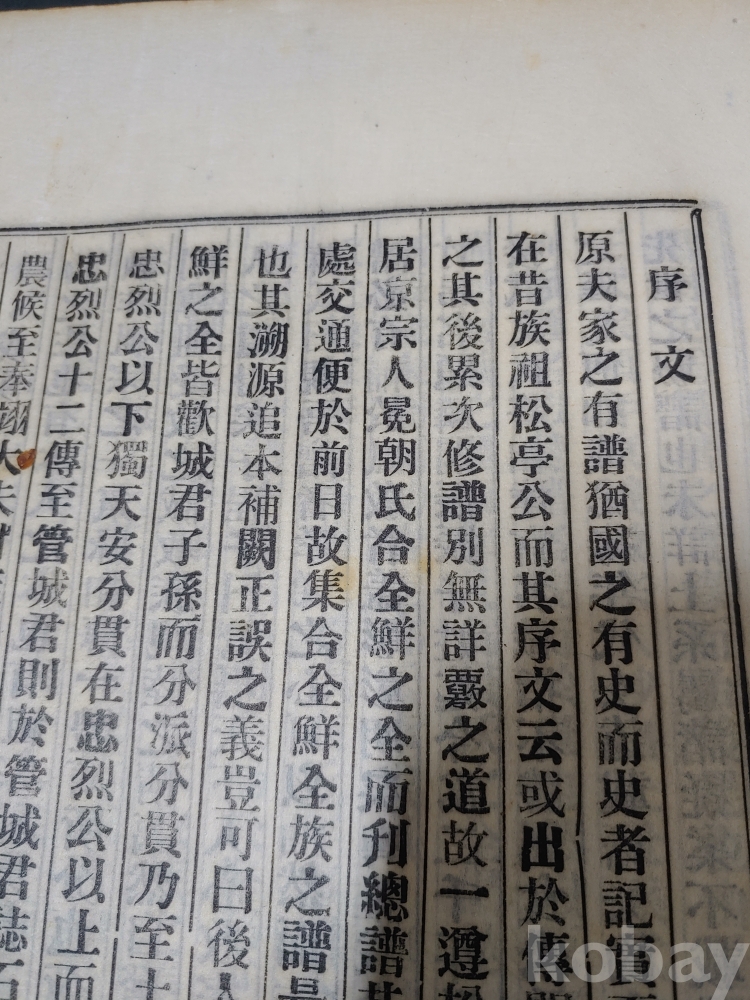 序文
原夫家之有譜猶國之有史而史者記實
在昔族祖松亭公而其序文云或出於傳
之其後累次修譜別無詳覈之道故一遵松
居京宗人冕朝氏合全鮮之全而刊總譜其
處交通便於前日故集合全鮮全族之譜
也其溯源追本補闕正誤之義豈可曰後人
鮮之全皆歡城君子孫而分派分貫乃至
忠烈公以下獨天安分貫在忠烈公以上而
忠烈公十二傳至管城君則於管城君誌石
農候至奉翊大夫
kobay